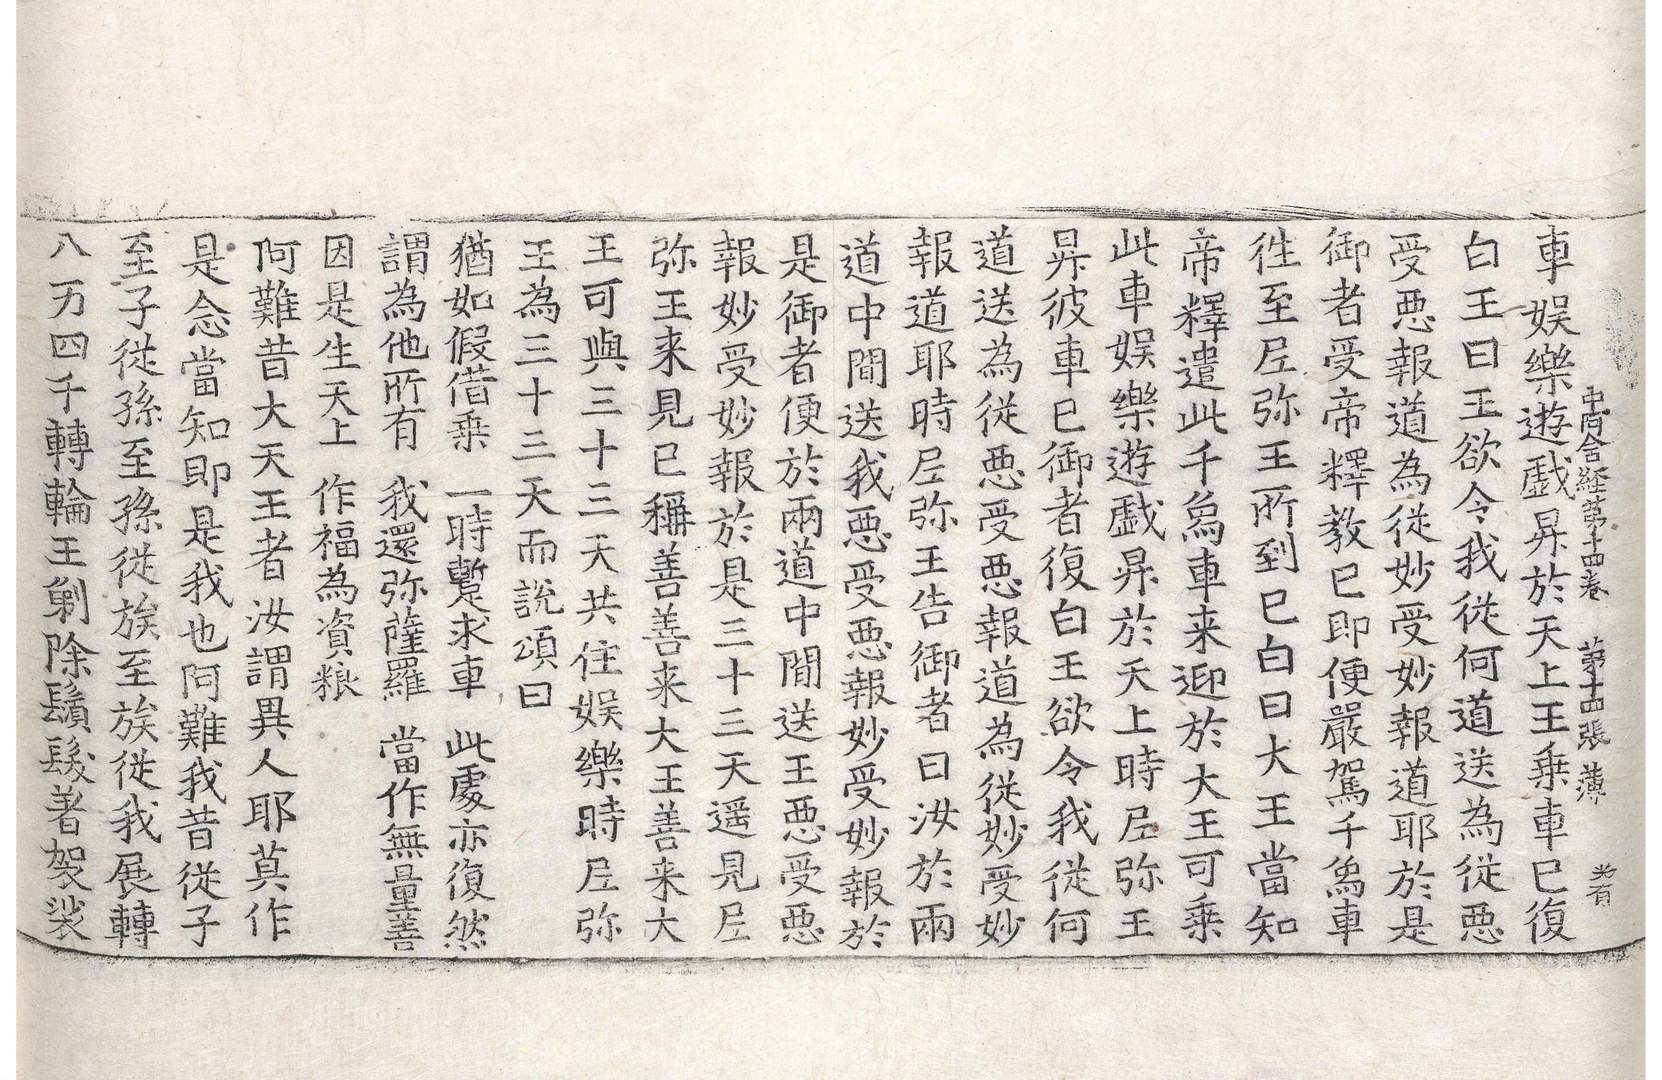 中阿含経第十四卷 第十四張 薄
車娯樂遊戱昇於天上王乗車已復
白王曰王欲令我從何道送為從悪
受悪報道為從妙受妙報道耶於是
御者受帝釋教已即便嚴駕千象車
徃至尼弥王所到已白曰大王當知
帝釋遣此千象車来迎於大王可乗
此車娯樂遊戱昇於天上時尼弥王
昇彼車已御者復白王欲令我從何
道送為從悪受悪報道為從妙受妙
報道耶時尼弥王告御者曰汝於兩
道中間送我悪受悪報妙受妙報於
是御者便於兩道中間送王悪受悪
報妙受妙報於是三十三天遥見尼
弥王来見已稱善善来大王善来大
王可與三十三天共住娯樂時尼弥
王為三十三天而說頌曰
猶如假借乗 一時暫求車 此處亦復然
謂為他所有 我還弥薩羅 當作無量善
因是生天上 作福為資粮
阿難昔大天王者汝謂異人耶莫作
是念當知即是我也阿難我昔從子
至子從孫至孫從族至族從我展轉
八万四千轉輪王剃除鬚髮著袈裟